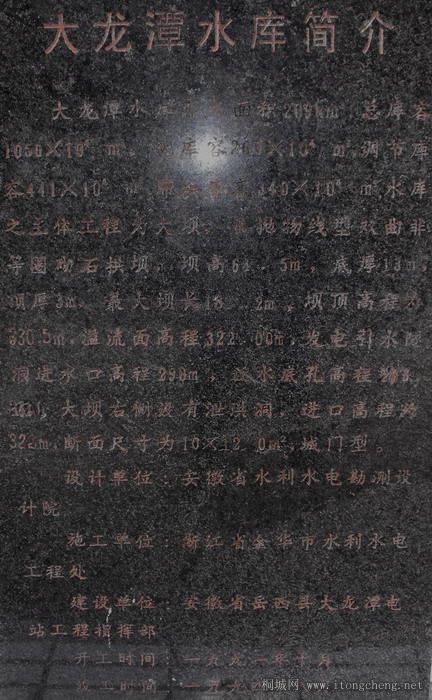 大龙潭水库简介
大龙潭水库 面积209km 总库容
1050×10⁴ m 库容 ×10⁴ m 调节库
容441×10⁴ m 140×10⁴ m 水库
之主体工程为大坝。 抛物线型双曲非
等圆砌石拱坝。坝高 .5m,底厚13m,
顶厚3m。最大坝长 .2m,坝顶高程为
330.5m,溢流面高程322.00m,发电引水隧
洞进水口高程 m, 水底孔高程
大坝右侧设有泄洪洞,进口高程为
323m,断面尺寸为10×12.0m²,城门型。
设计单位:安徽省水利水电勘测设
计院
施工单位:浙江省金华市水利水电
工程处
建设单位:安徽省岳西县大龙潭电
站工程指挥部
开工时间:一九九一年十月
竣工时间:一九九
桐城网 www.itongcheng.net